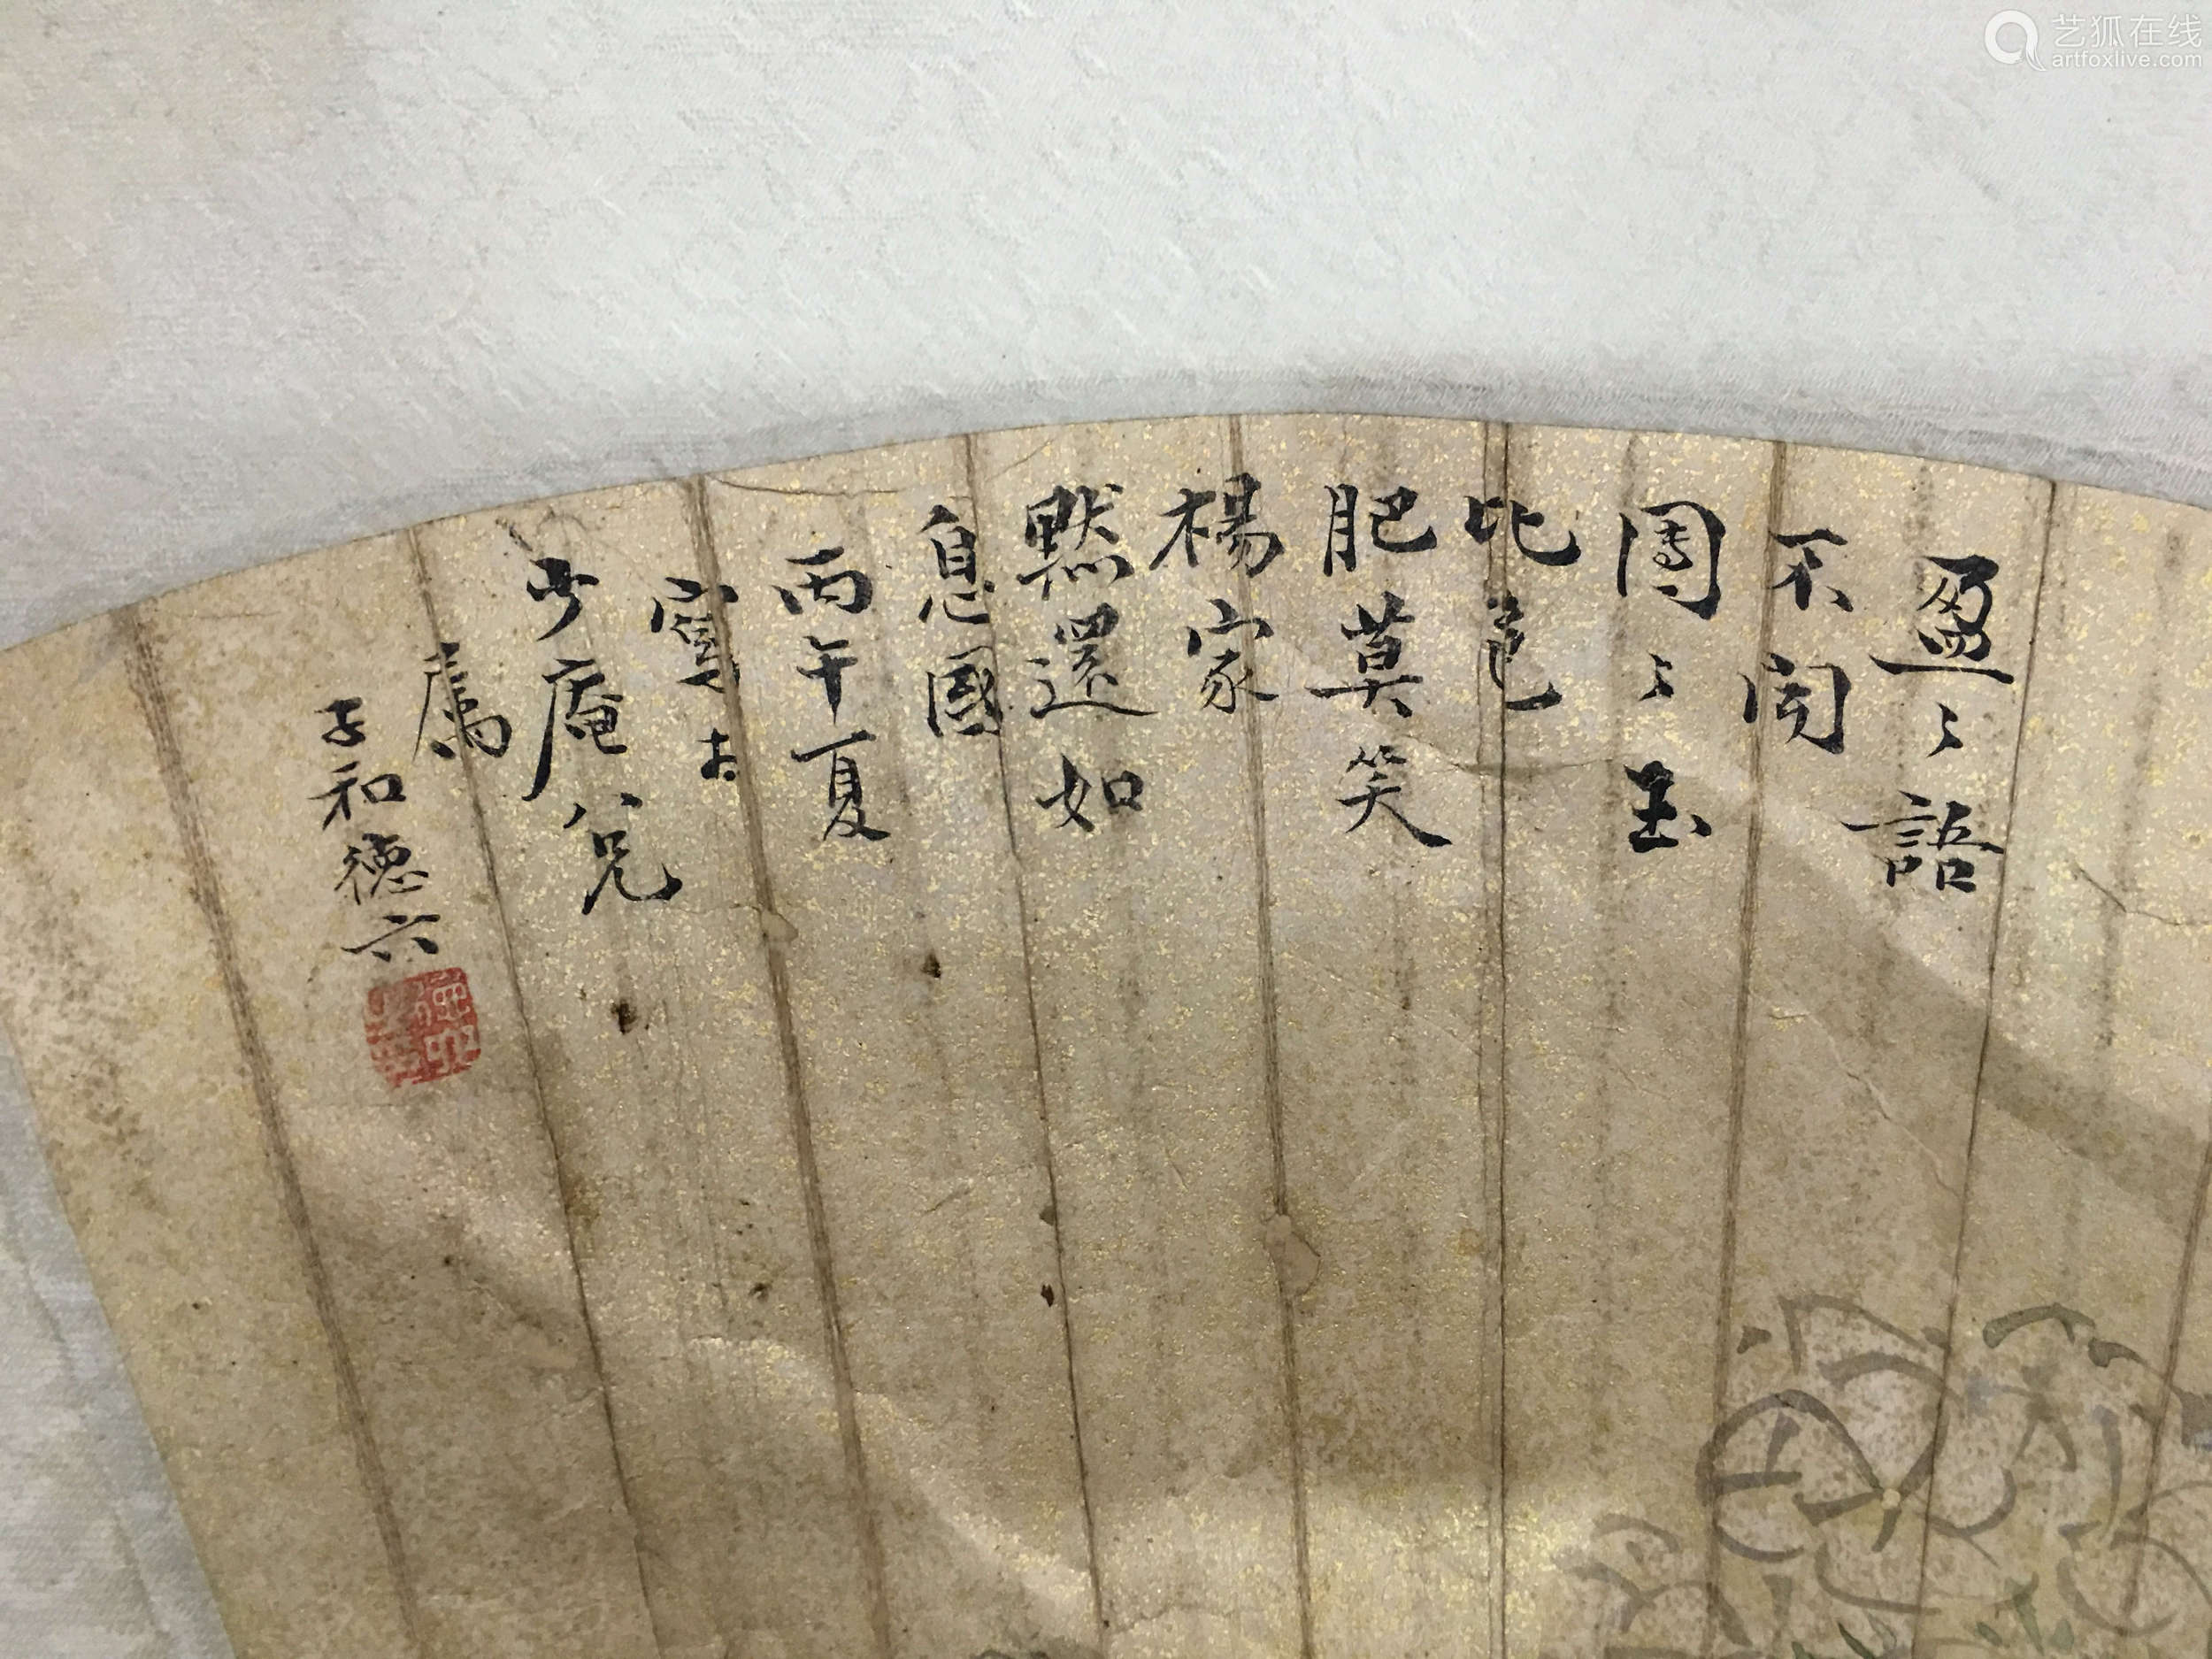 盈〻語
不闻
團〻玉
比色
肥莫笑
楊家
黙還如
息國
丙午夏
寫古
少庵兄
属
子和德六
艺狐在线
artfoxlive.com